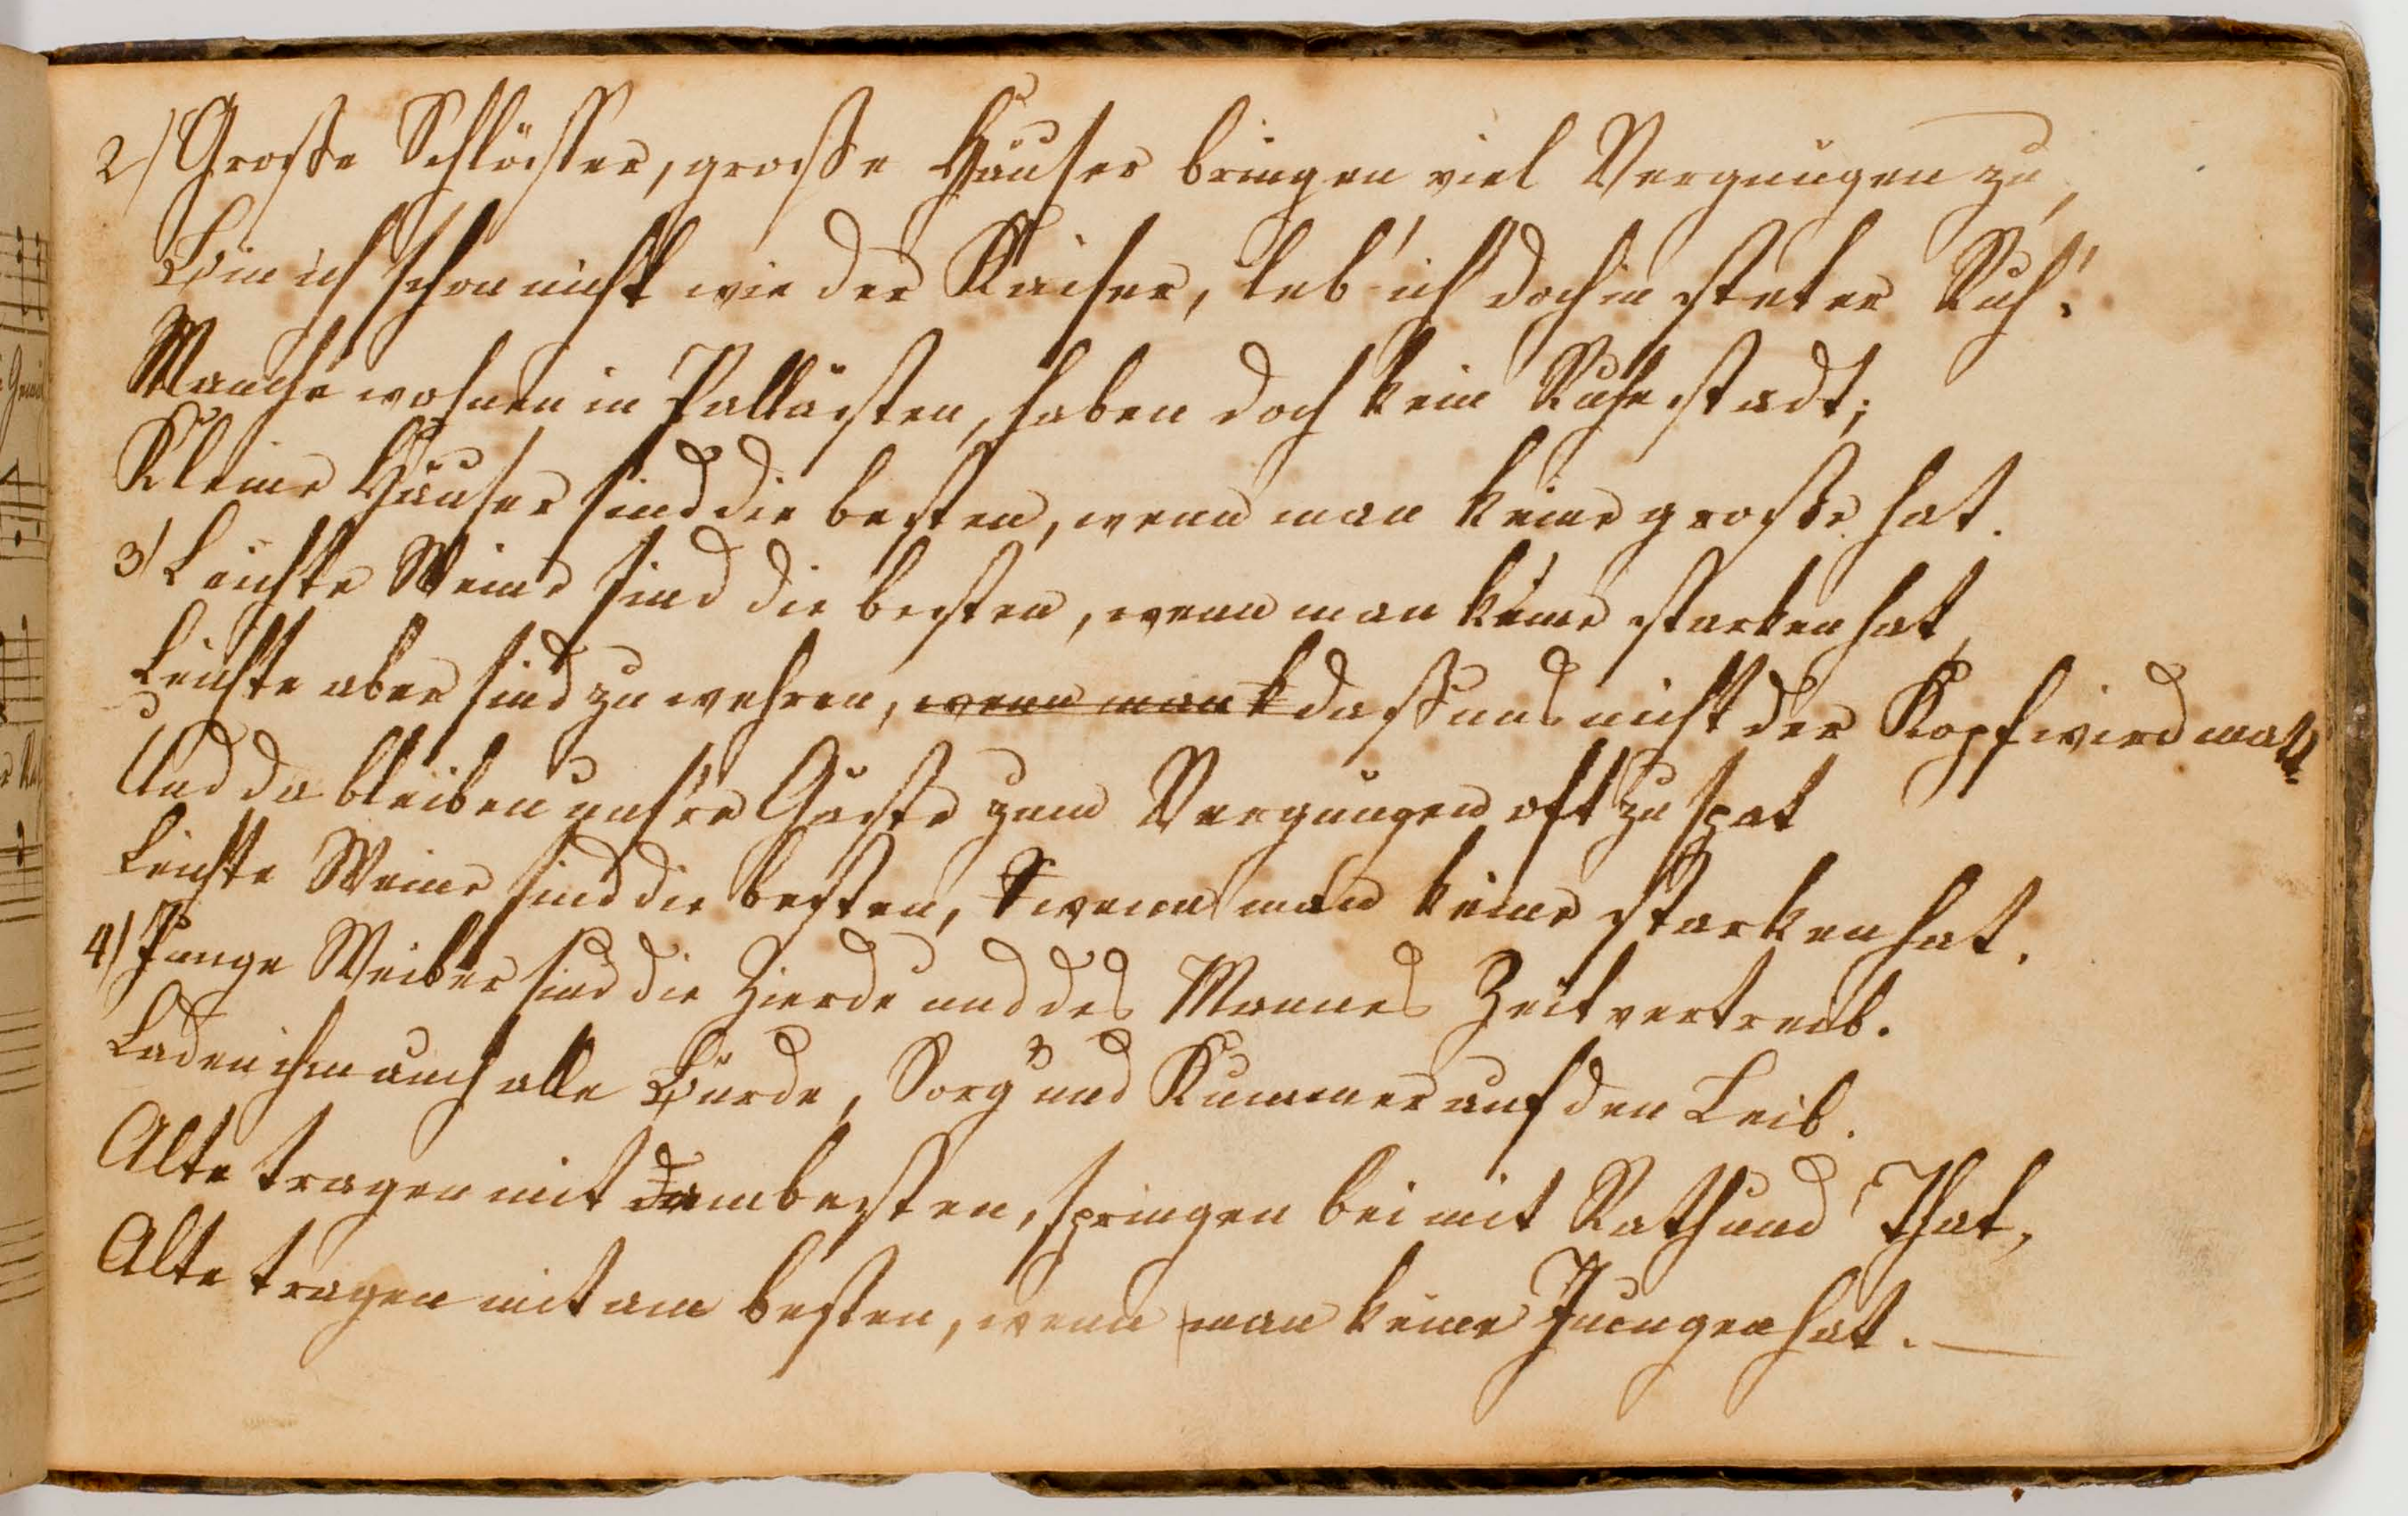 2) Große Schlösser, große Häuser bringen viel Vergnügen zu,
Bin ich schon nicht wie der Kaiser, leb' ich doch in steter Ruh'.
Manche wohnen in Pallästen, haben doch kein Ruhestadt;
Kleine Häuser sind die besten, wenn man keine große hat.
3) Leichte Weine sind die besten, wenn man keine starken hat,
Leichte aber sind zu wehren, wenn man k daß uns nicht der Kopf wird matt.
Und da bleiben unsre Gäste zum Vergnügen oft zu spat
Leichte Weine sind die besten, wenn man keine starken hat.
4) Junge Weiber sind die Zierde und des Mannes Zeitvertreib.
Laden ihm auch alle Bürde, Sorg' und Kummer auf den Leib.
Alte tragen mit am besten, springen bei mit Rath und That,
Alte tragen mit am besten, wenn man keine Jungen hat. —